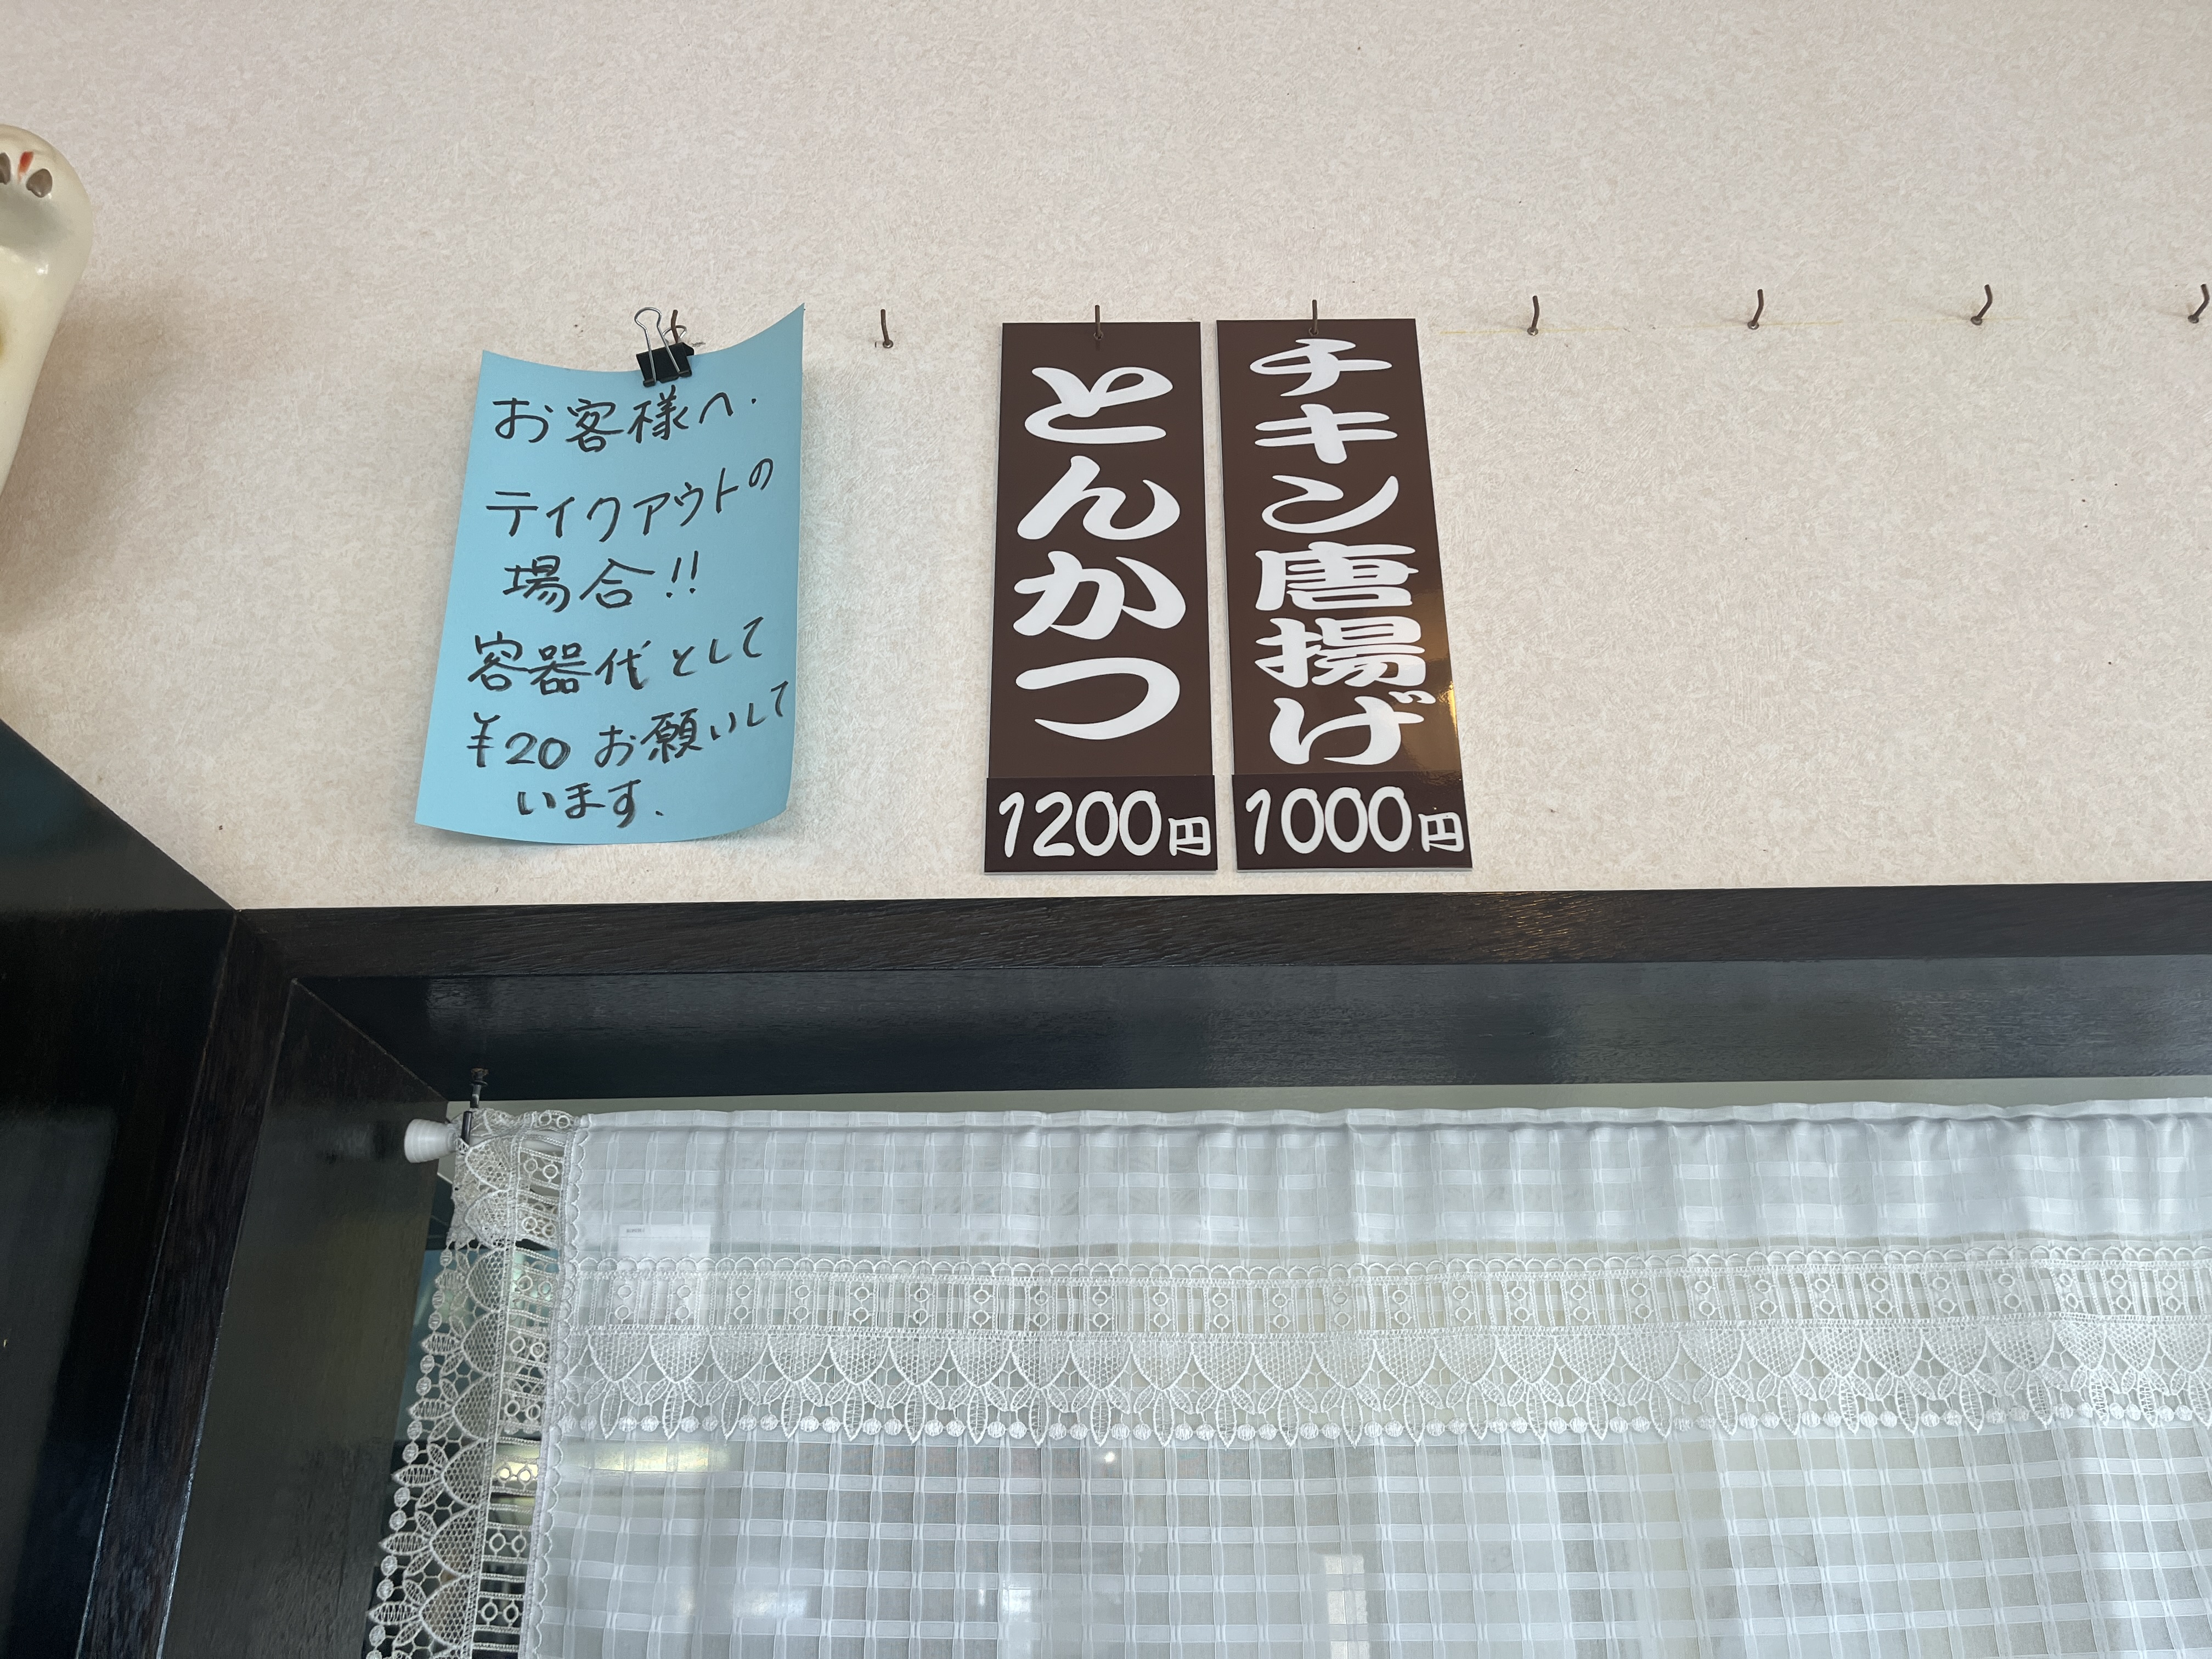 お客様へ.
テイクアウトの
場合!!
容器代として
¥20お願いして
います.
とんかつ
1200円
チキン唐揚げ
1000円